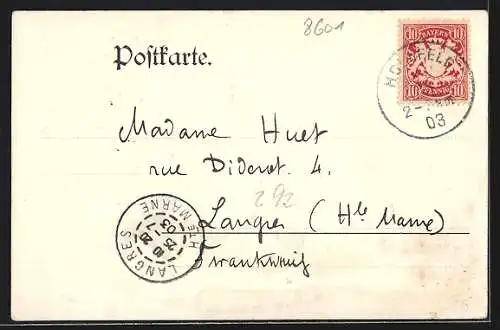 8601
BAYERN
10 10
10 PFENNIG 10
HO FELD
2-
03
Postkarte.
Madame Huet
rue Diderot. 4.
292
Langres (Hte Marne)
Frankreich
LANGRES
HTE MARNE
03